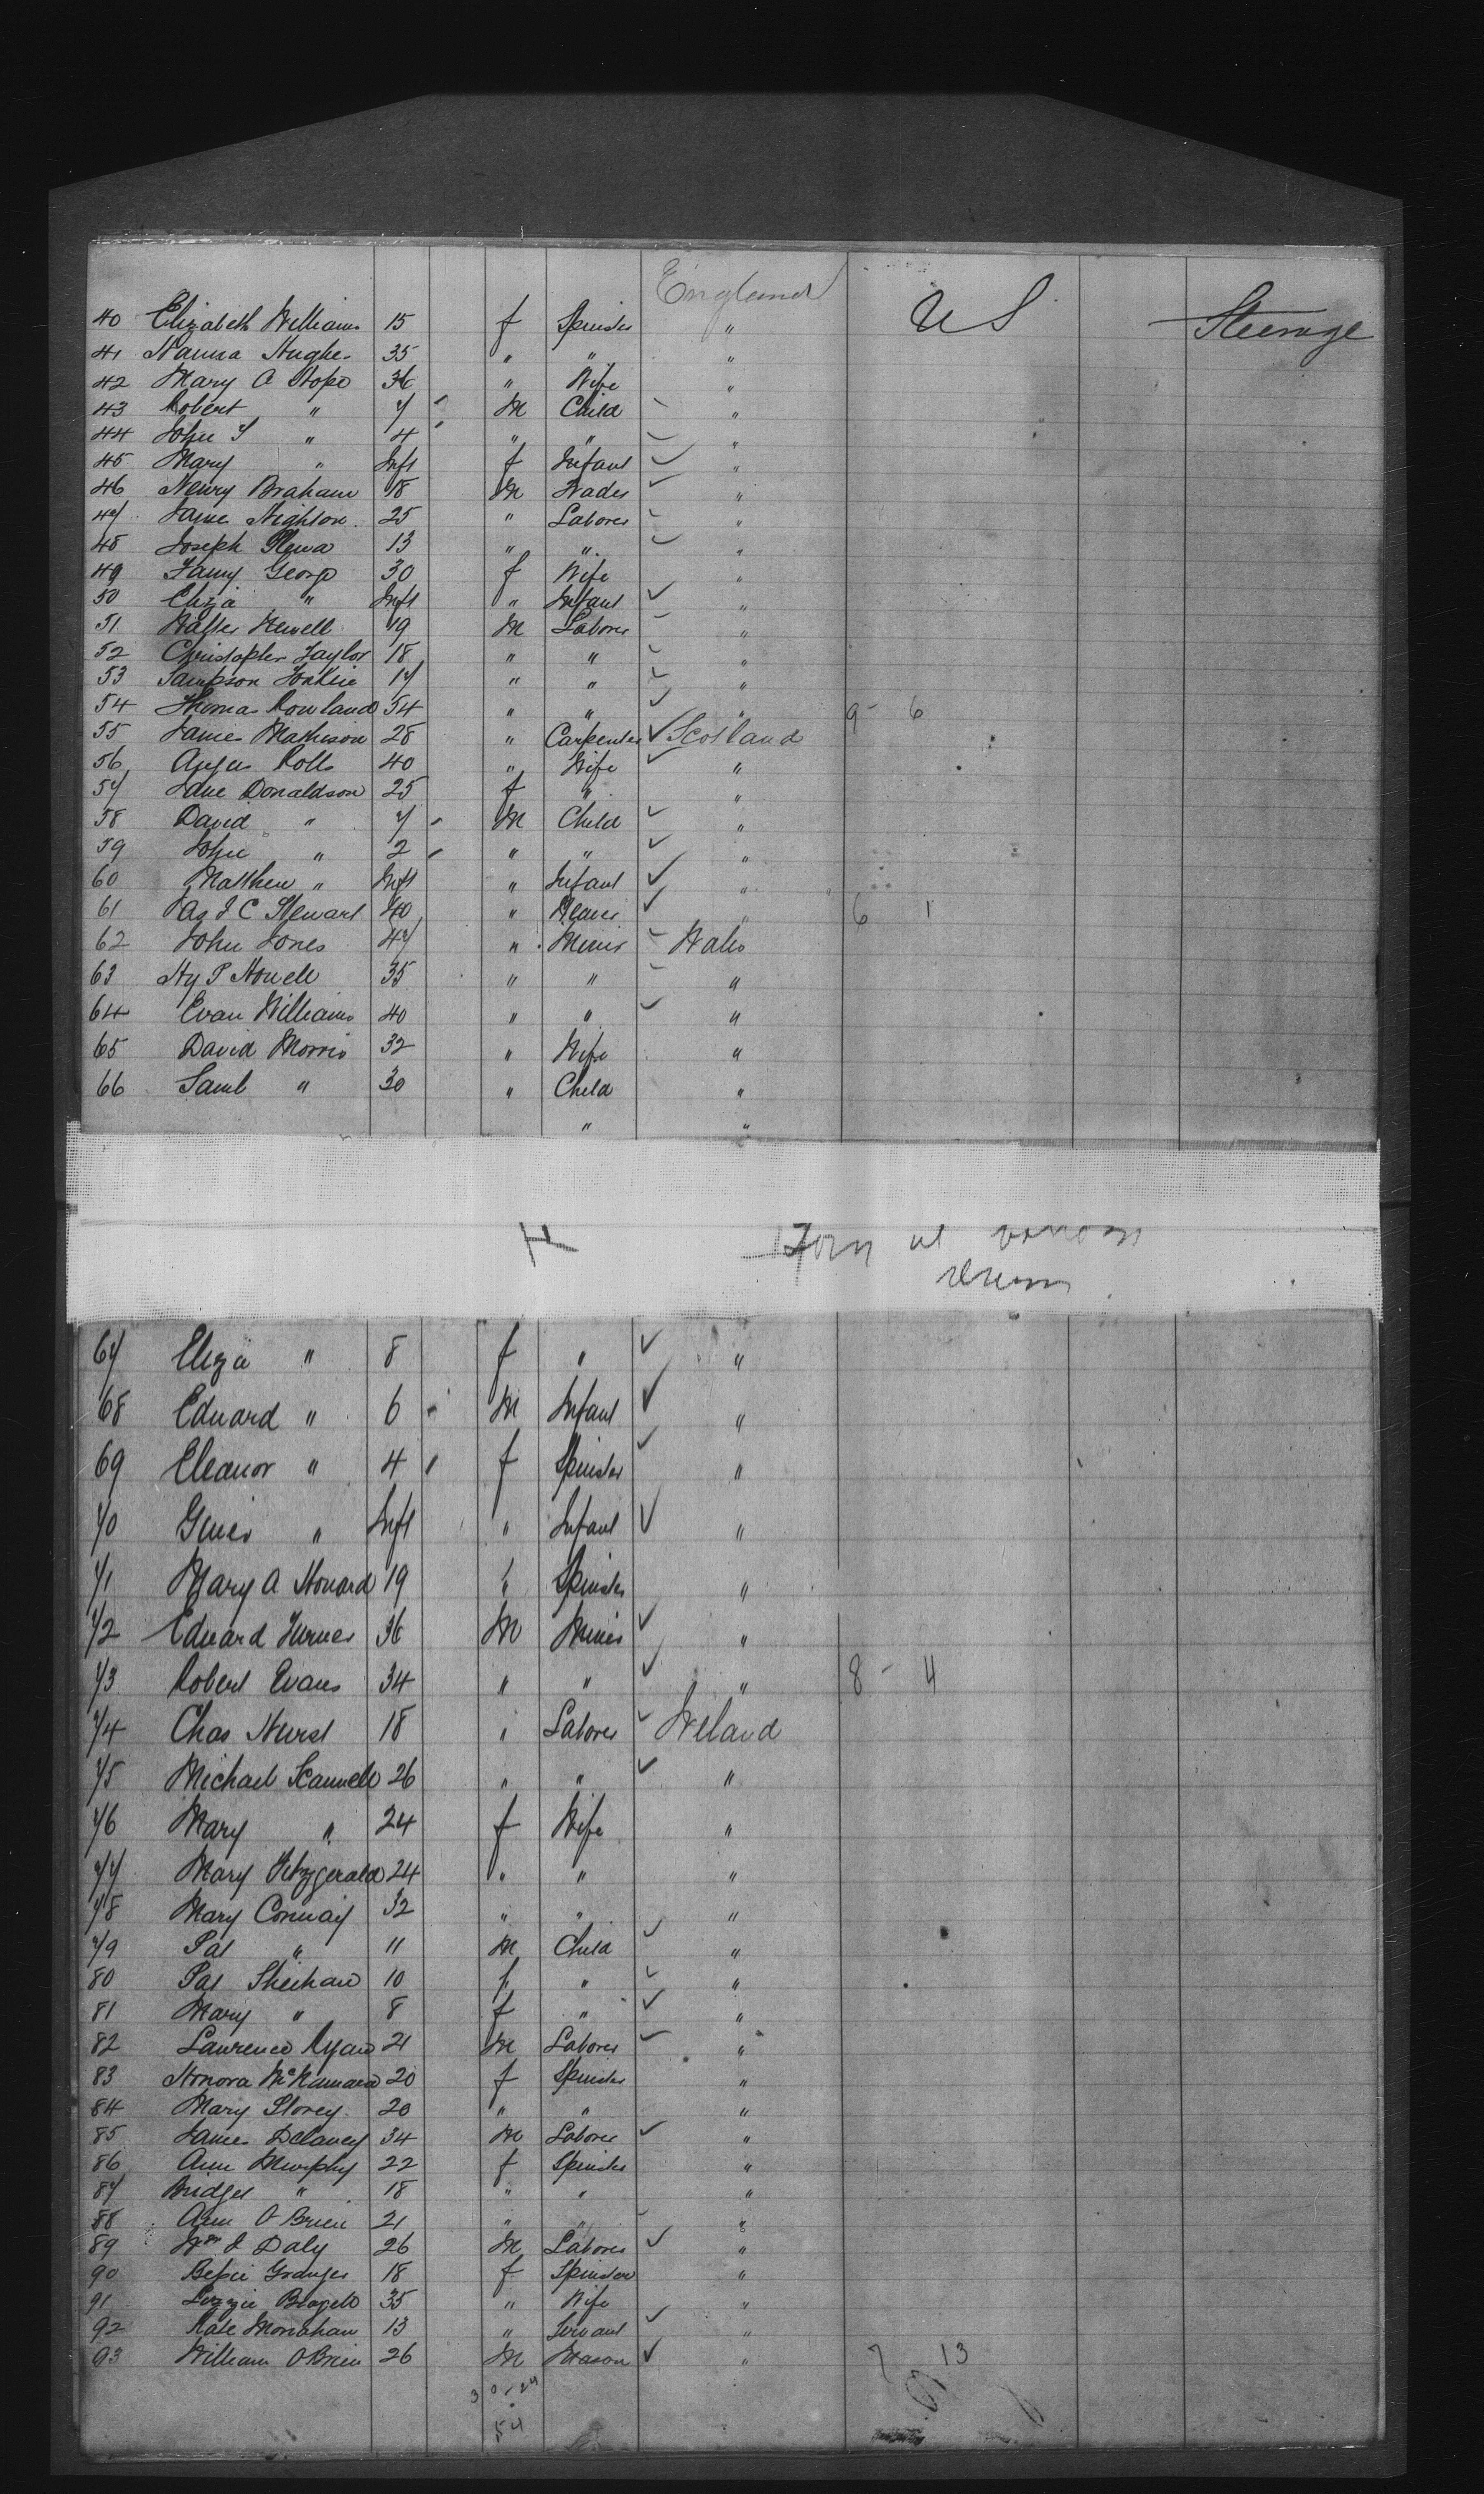 England
40 Elizabeth Williams 15 f Spinster " US Steerage
41 Hanna Hughes 35 " " "
42 Mary A Hope 36 " Wife "
43 Robert " 7 M Child "
44 John S " 4 " " "
45 Mary " Inft f Infant "
46 Henry Braham 18 M "
47 James Nighton 25 " Laborer "
48 Joseph 13 " " "
49 Fanny George 30 f Wife "
50 Eliza " Inft " Infant "
51 Walter Newell 19 M Laborer "
52 Christopher Taylor 18 " " "
53 Sampson 17 " " "
54 Thomas Rowland 54 " " " 9 - 6
55 James Mathison 28 " Carpenter Scotland
56 Rolls 40 " Wife "
57 Jane Donaldson 25 f " "
58 David " 7 M Child "
59 John " 2 " " "
60 Matthew " Inft " Infant "
61 Jas J C Stewart 40 " " 6 1
62 John Jones 47 " Miner Wales
63 Hy P Howell 35 " " "
64 Evan Williams 40 " " "
65 David Morris 32 " Wife "
66 Saml " 30 " Child "
" "
67 Eliza " 8 f " "
68 Edward " 6 M Infant "
69 Eleanor " 4 f Spinster "
70 " Inft " Infant "
71 Mary A Howard 19 " Spinster "
72 Edward Turner 36 M Miner "
73 Robert Evans 34 " " " 8 - 4
74 Chas Hurst 18 " Laborer Ireland
75 Michael Scannell 26 " " "
76 Mary " 24 f Wife "
77 Mary Fitzgerald 24 " " "
78 Mary Conway 32 " " "
79 Pat " 11 M Child "
80 Pat Sheehan 10 " "
81 Mary " 8 f " "
82 Laurence Ryan 21 M Laborer "
83 Honora McNamara 20 f Spinster "
84 Mary Storey 20 " " "
85 James Delaney 34 M Laborer "
86 Ann Murphy 22 f Spinster "
87 Bridget " 18 " " "
88 Ann O Brien 21 " " "
89 Wm J Daly 26 M Laborer "
90 Bessie Granger 18 f Spinster "
91 Lizzie 35 " Wife "
92 Kate Monahan 13 " Servant "
93 William OBrien 26 M Mason " 7 13
30 - 24
54